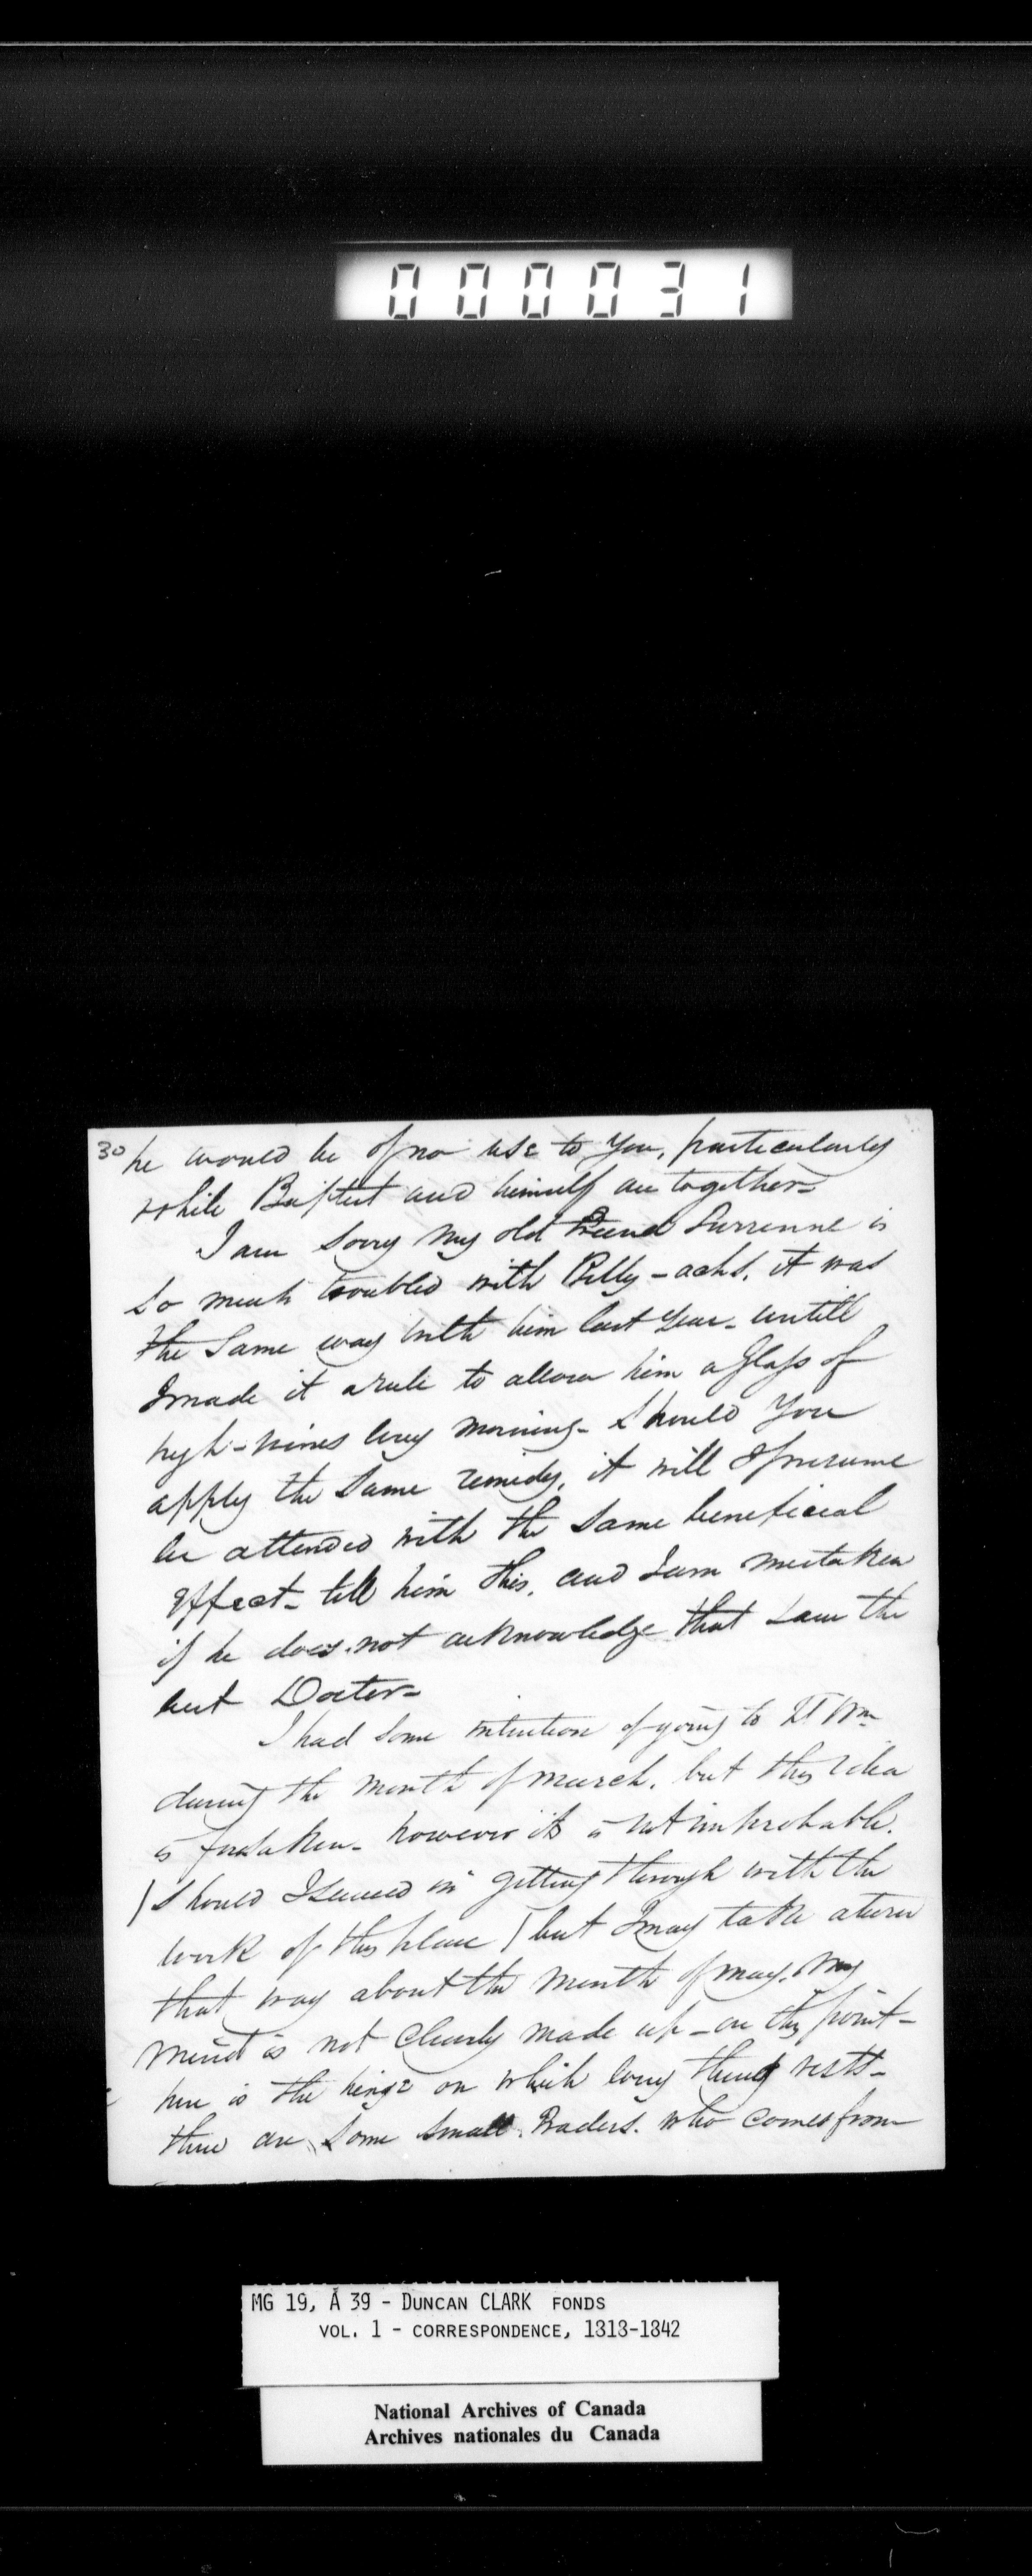 000031
30 he would be of no use to You, particularly
while Baptist and himself are together-
I am Sorry My old Friend Surrenne is
So much troubled with Belly-achs, it was
the Same way with him last Year- untill
I made it a rule to allow him a Glass of
high-wines every Morning- Should You
apply the Same remidy, it will I presume
be attended with the Same beneficial
Effect- tell him this, and I am mistaken
if he does not acknowledge that I am the
best Doctor-
I had Some intention of going to Ft Wm
during the Month of March, but this Idea
is forsaken- however its not improbable.
(Should I Succeed in Getting through with the
work of this place) but I may take a turn
that way about the Month of May, My
Mind is not Clearly made up - on this point-
here is the hinge on which every thing rests-
there are Some Small Traders. who comes from
MG 19, A 39 - DUNCAN CLARK FONDS
VOL. 1 - CORRESPONDENCE, 1813-1842
National Archives of Canada
Archives nationales du Canada